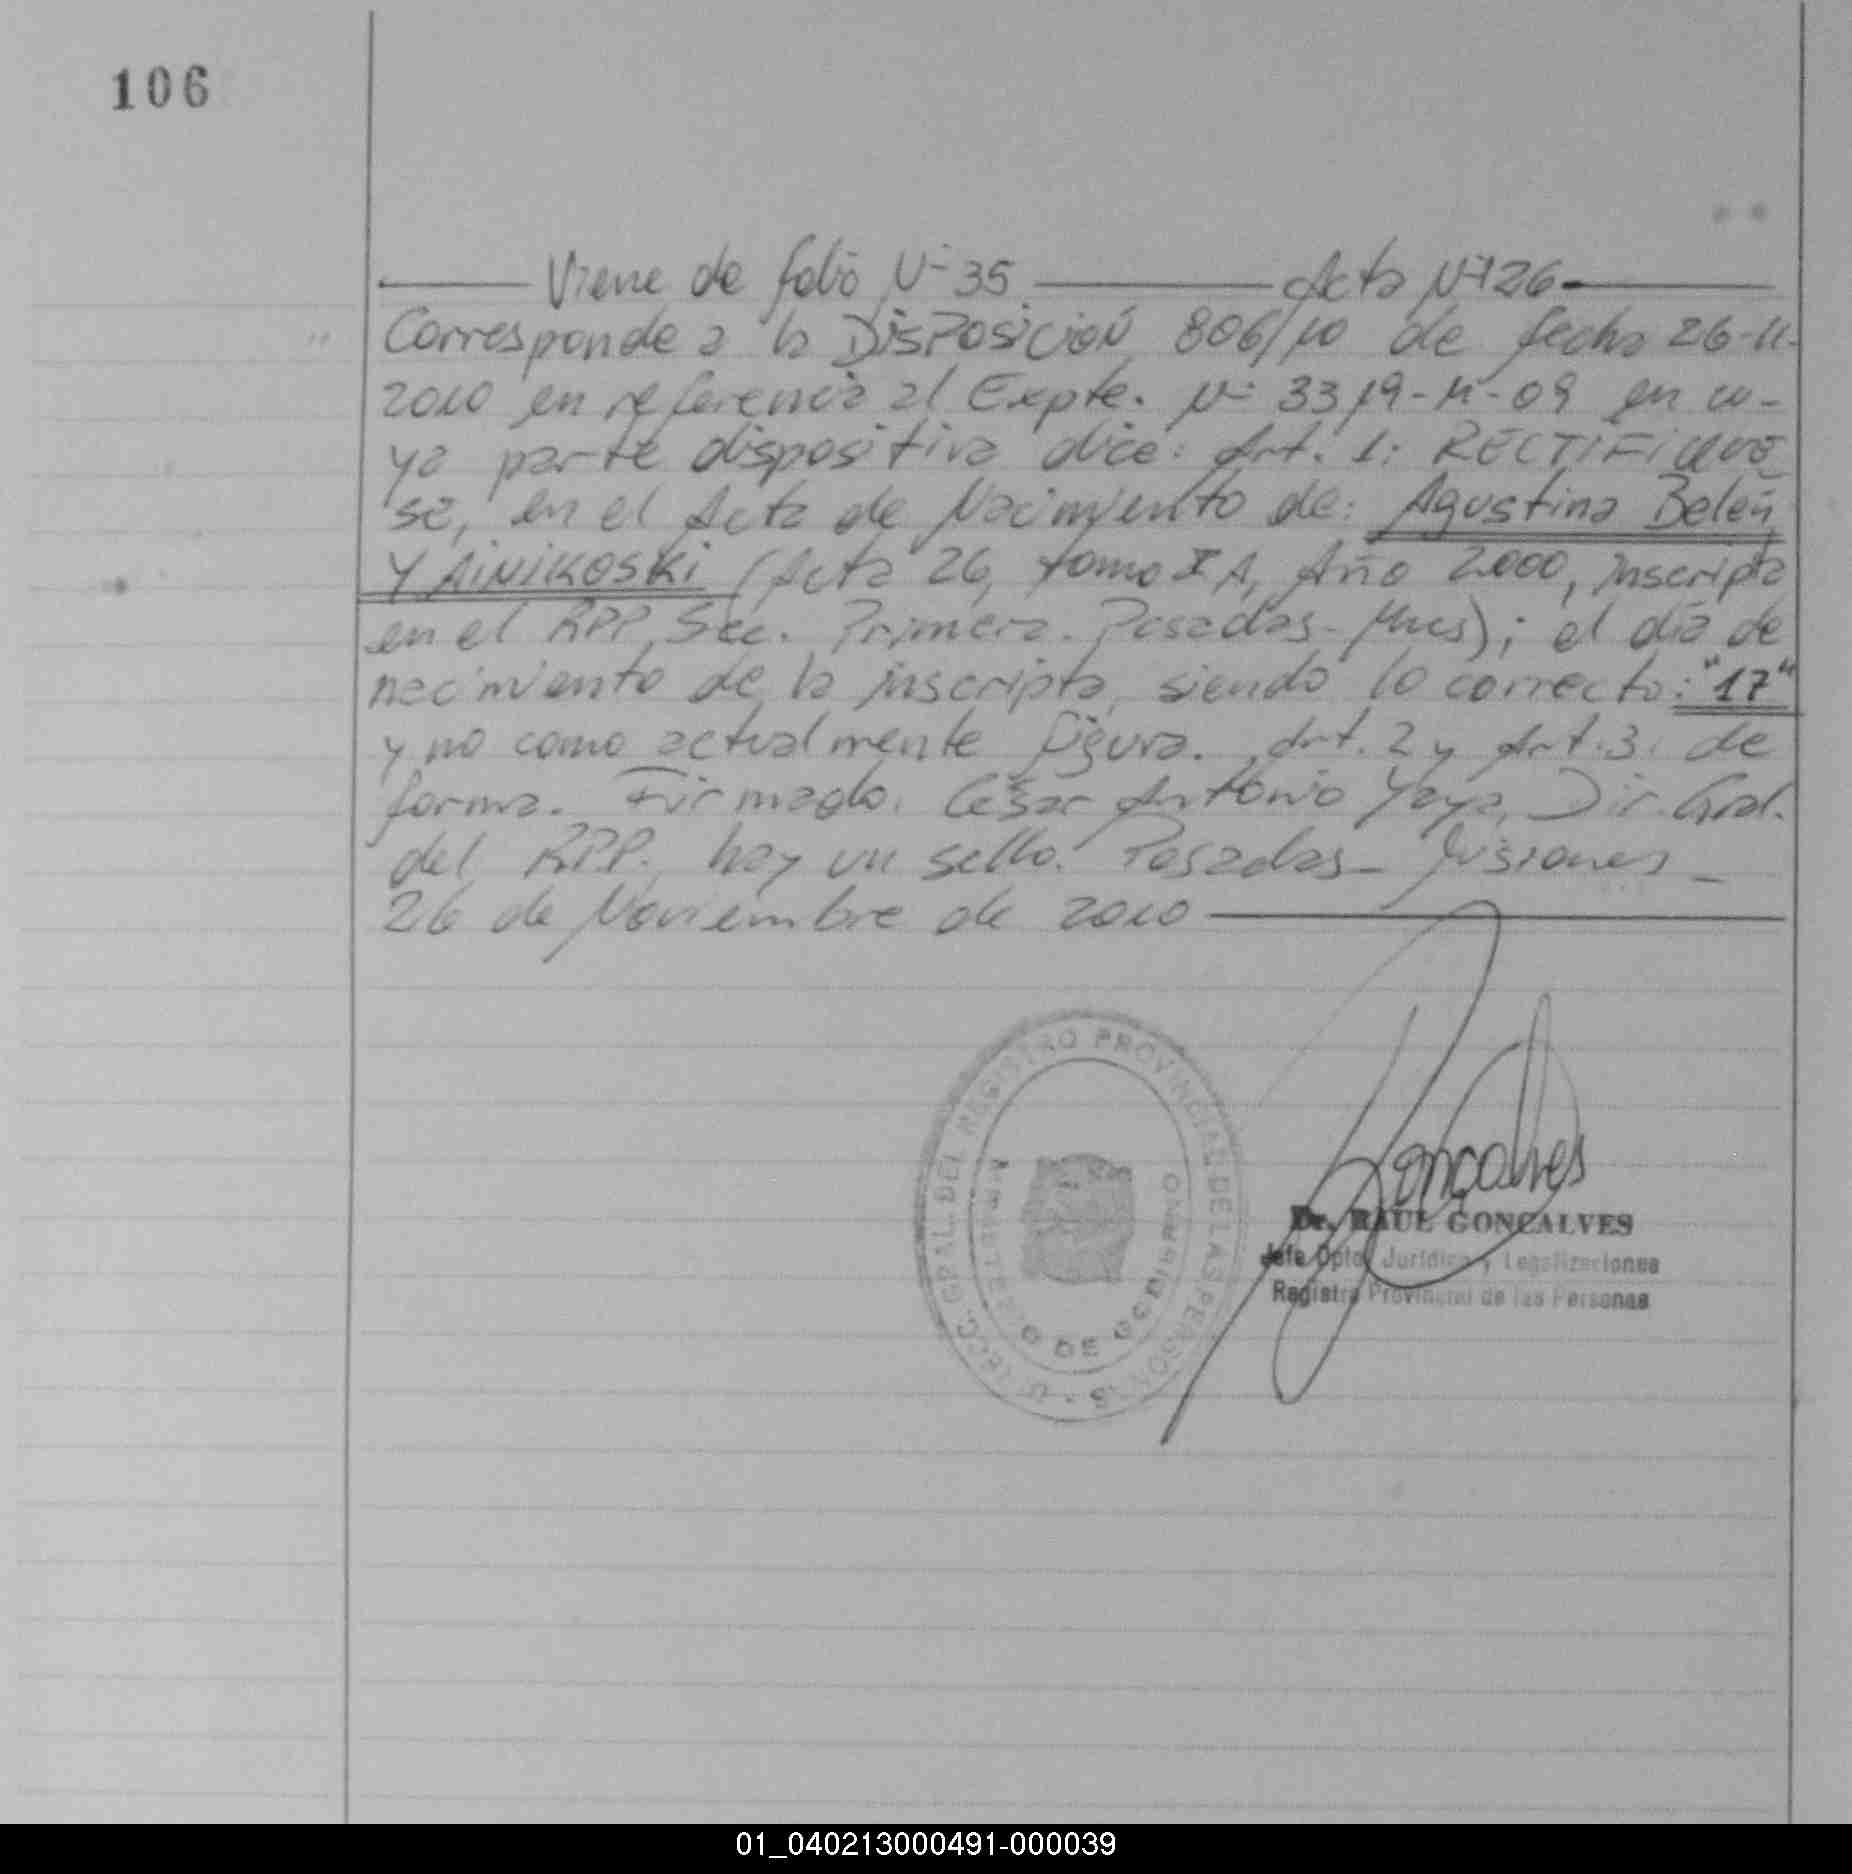 106
Viene de folio Nº 35 Acta Nº 26
Corresponde a la DISPOSICIÓN 806/10 de fecha 26-11-
2010 en referencia al Expte. Nº 3319-M-09 en cu-
ya parte dispositiva dice: Art. 1: RECTIFIQUE
se, en el Acta de Nacimiento de: Agustina Belén
YAINIKOSKI (Acta 26, tomo I A, Año 2000, inscripta
en el RPP, Sec. Primera. Posadas - Mnes); el día de
nacimiento de la inscripta, siendo lo correcto: "17"
y no como actualmente figura. Art. 2 y Art. 3: de
forma. Firmado. César Antonio Yaya, Dir. Gral.
del RPP. hay un sello. Posadas - Misiones -
26 de Noviembre de 2010
GRAL. DEL REGISTRO PROVINCIAL DE LAS PERSONAS
MINISTERIO DE GOBIERNO
Gonçalves
Dr. RAUL GONCALVES
Jefe Dpto. Jurídico y Legalizaciones
Registro Provincial de las Personas
01_040213000491-000039